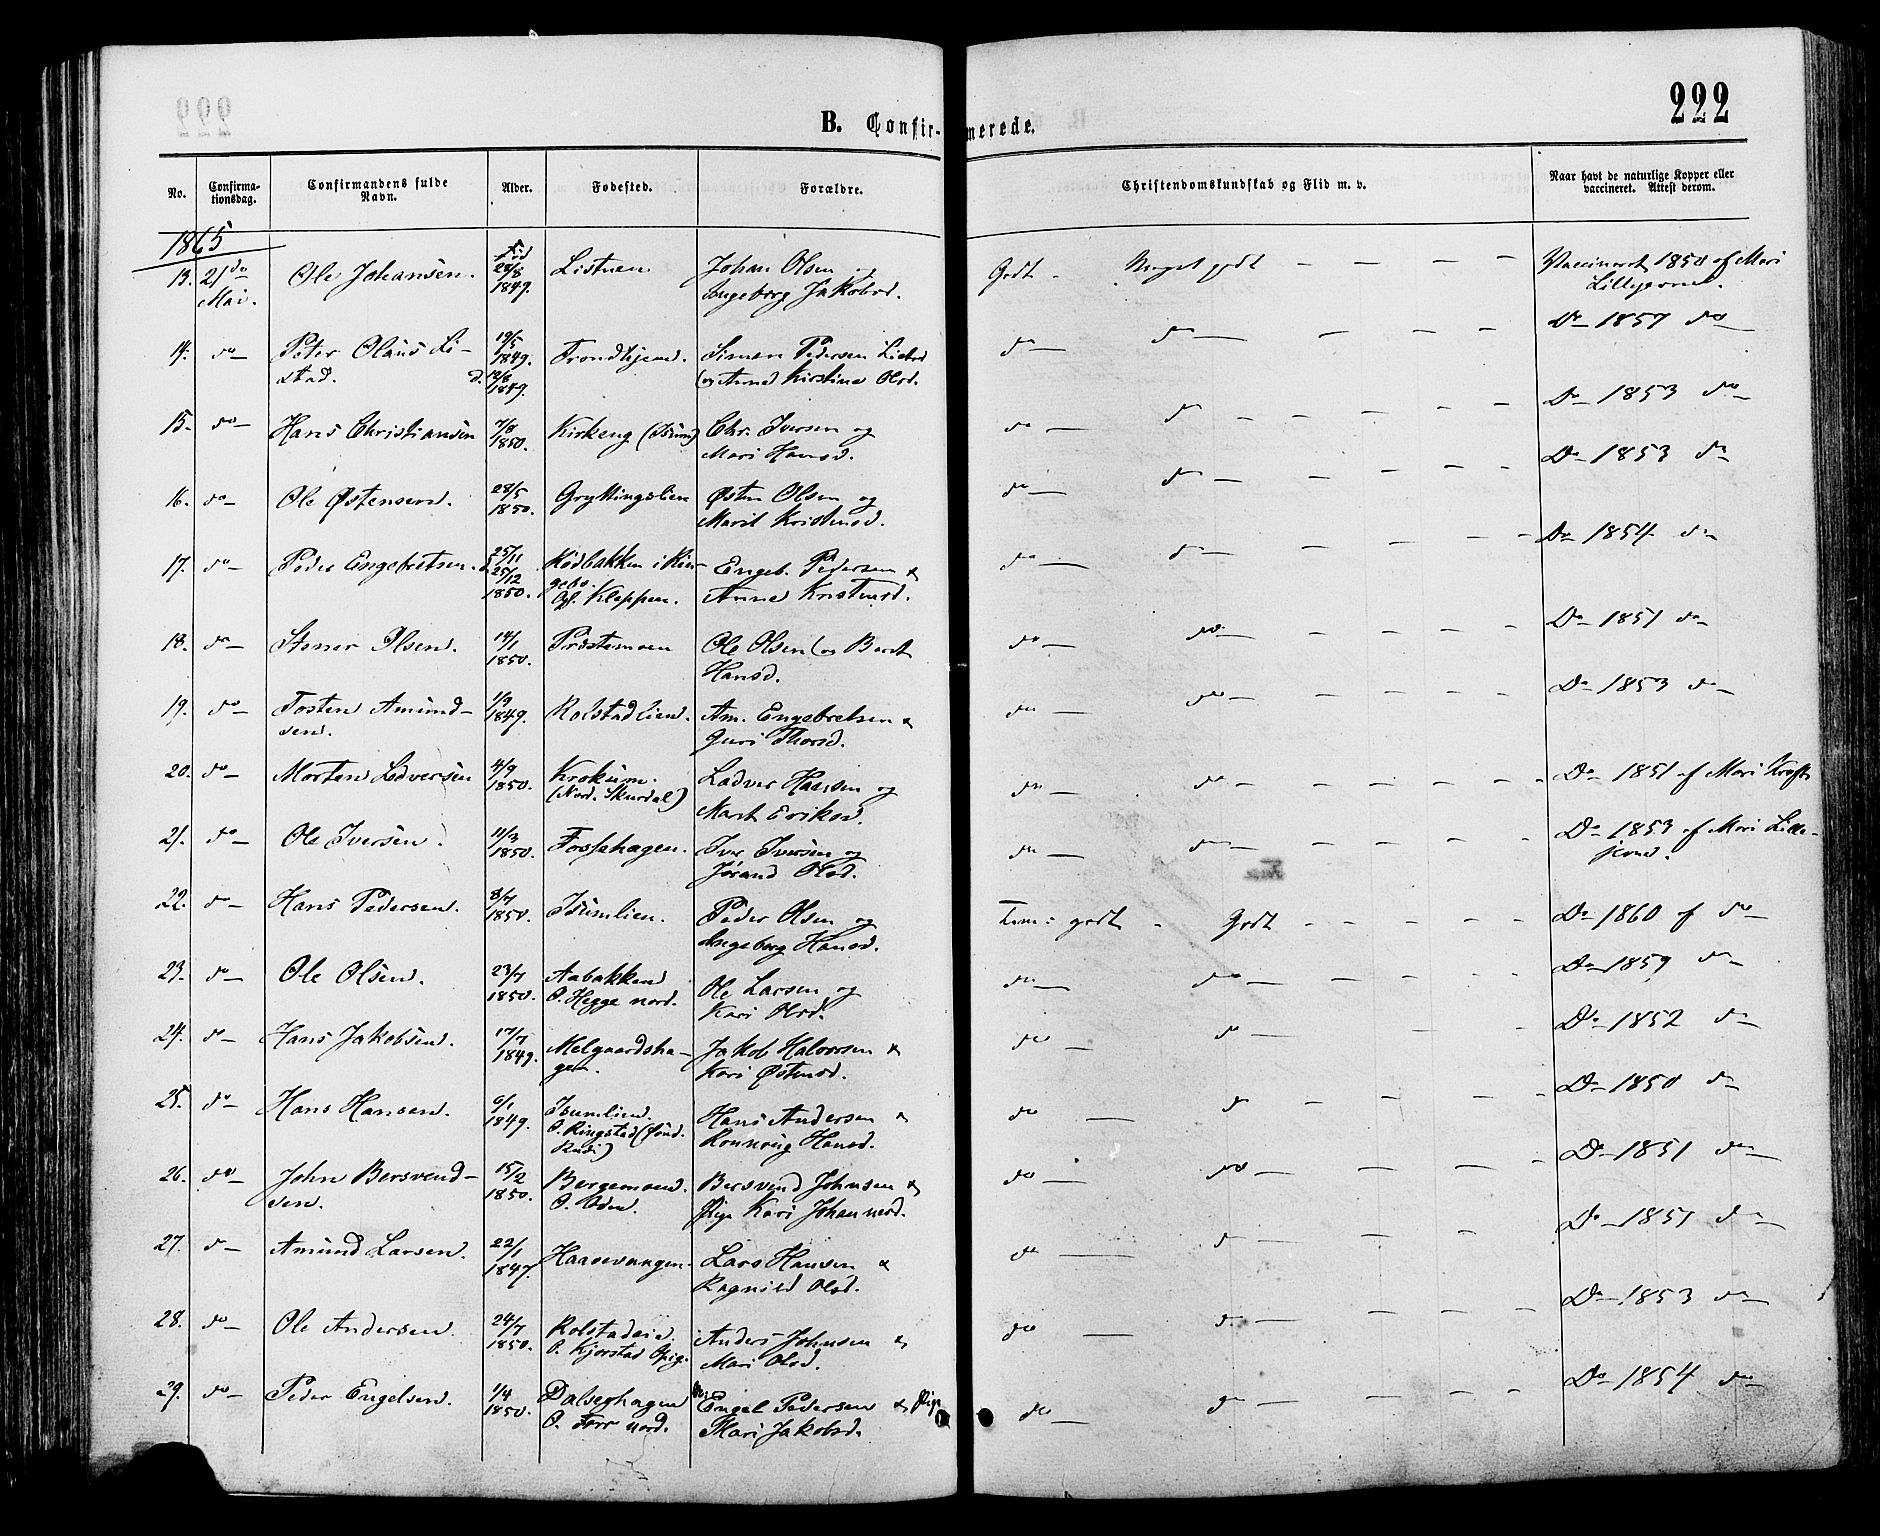 222
B. Confirmerede.
No. Confirmationsdag. Confirmandens fulde Navn. Alder. Fødested. Forældre. Christendomskundskab og Flid m. v. Naar havt de naturlige Kopper eller vaccineret. Attest derom.
1865
13. 21de Mai. Ole Johansen. Fød 28/8 1849. Listuen Johan Olsen og Ingeborg Jakobsd. Godt - Meget godt - - - - Vaccineret 1850 af Mari Lillejevne.
14. do Peter Olaus Listad. 19/5 1849. d. 12/8 1849. Trondhjem. Simen Pedersen Listad og Anne Kirstine Olsd. do do - - - Do 1857 do
15. do Hans Christiansen 7/8 1850. Kirkeng (Isum) Chr. Iversen og Mari Hansd. do do - - - - - Do 1853 do
16. do Ole Østensen. 28/5 1850. Gryttingslien Østen Olsen og Marit Kristensd. do do - - - - Do 1853 do
17. do Peder Engebretsen. 25/11 d. 25/12 1850. Rødbakken i Ringebo. Opf. Kleppen. Engeb. Pedersen & Anne Kristensd. do do - - - - Do 1854 do
18. do Stener Olsen. 14/1 1850. Præstemoen Ole Olsen og Berit Hansd. do do - - - - Do 1851 do
19. do Tosten Amundsen. 1/9 1849. Rolstadlien. Am. Engebretsen & Guri Thorsd. do do - - - - - Do 1853 do
20. do Morten Ledversen 4/9 1850. Krokum. (Nord. Skurdal) Ledver Hansen og Marit Eriksd. do do - - - - - Do 1851 af Mari Kroft
21. do Ole Iversen. 11/3 1850. Fossehagen. Iver Iversen og Jørand Olsd. do do - - - - - Do 1853 af Mari Lillejevne.
22. do Hans Pedersen. 8/7 1850. Isumlien. Peder Olsen og Ingeborg Hansd. Tem. godt - Godt - - - - - Do 1860 af do
23. do Ole Olsen. 23/7 1850. Aabakken O. Hegge nord. Ole Larsen og Kari Olsd. do do - - - - Do 1859 do
24. do Hans Jakobsen. 17/7 1849. Melgaardshagen. Jakob Halvorsen & Kari Østensd. do do - - Do 1852 do
25. do Hans Hansen. 6/1 1849. Isumlien. O. Ringstad (sønd. Rudi) Hans Andersen & Rønnoug Hansd. do do - - - - Do 1850 do
26. do John Bersvendsen. 15/2 1850. Bergemoen. O. Oden. Bersvend Johnsen & Pige Kari Johannesd. do do - - - Do 1851 do
27. do Amund Larsen. 22/1 1847. Haavevangen. Lars Hansen & Ragnild Olsd. do do - - - Do 1851 do
28. do Ole Andersen. 24/7 1850. Rolstadeie. O. Kjorstad Opig. Anders Johnsen & Mari Olsd. do do - - - Do 1853 do
29. do Peder Engelsen. 1/4 1850. Dalseghagen O. Forr nord. Engel Pedersen & Pige Mari Jakobsd. do do - - - Do 1854 do